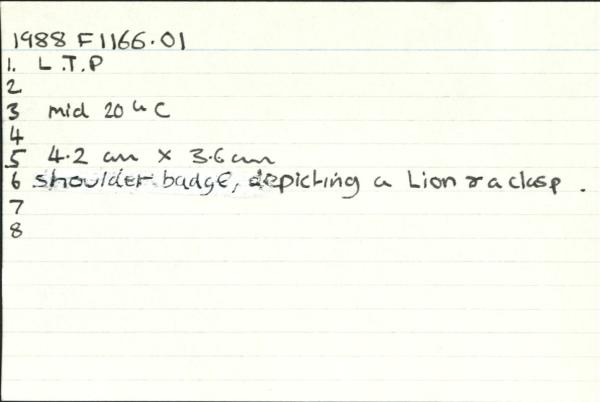 1988 F1166.01
1. L.T.P
2
3 mid 20th C
4
5 4.2 cm x 3.6 cm
6 shoulder badge, depicting a Lion & a clasp.
7
8